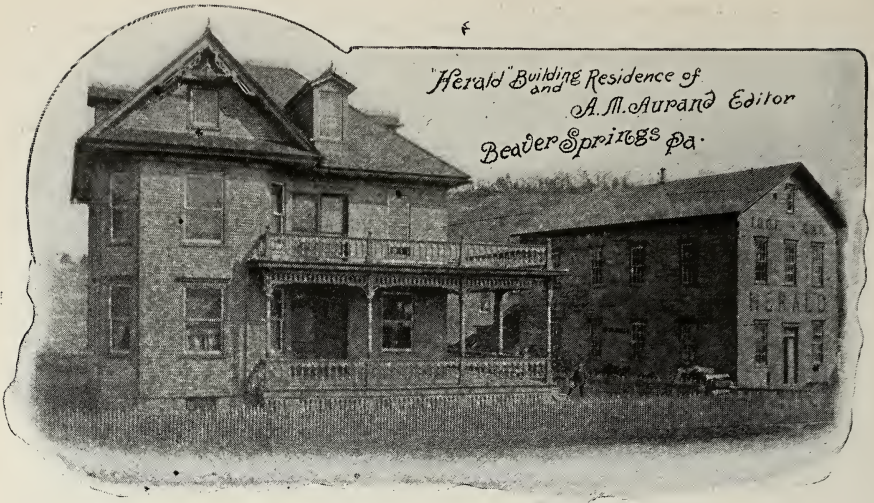 "Herald" Building and Residence of
A. M. Aurand Editor
Beaver Springs Pa.
I.O.O.F.
HERALD